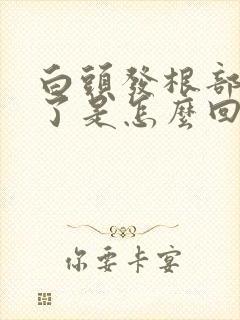 白頭發根部
了是怎麼回
你要卡宴